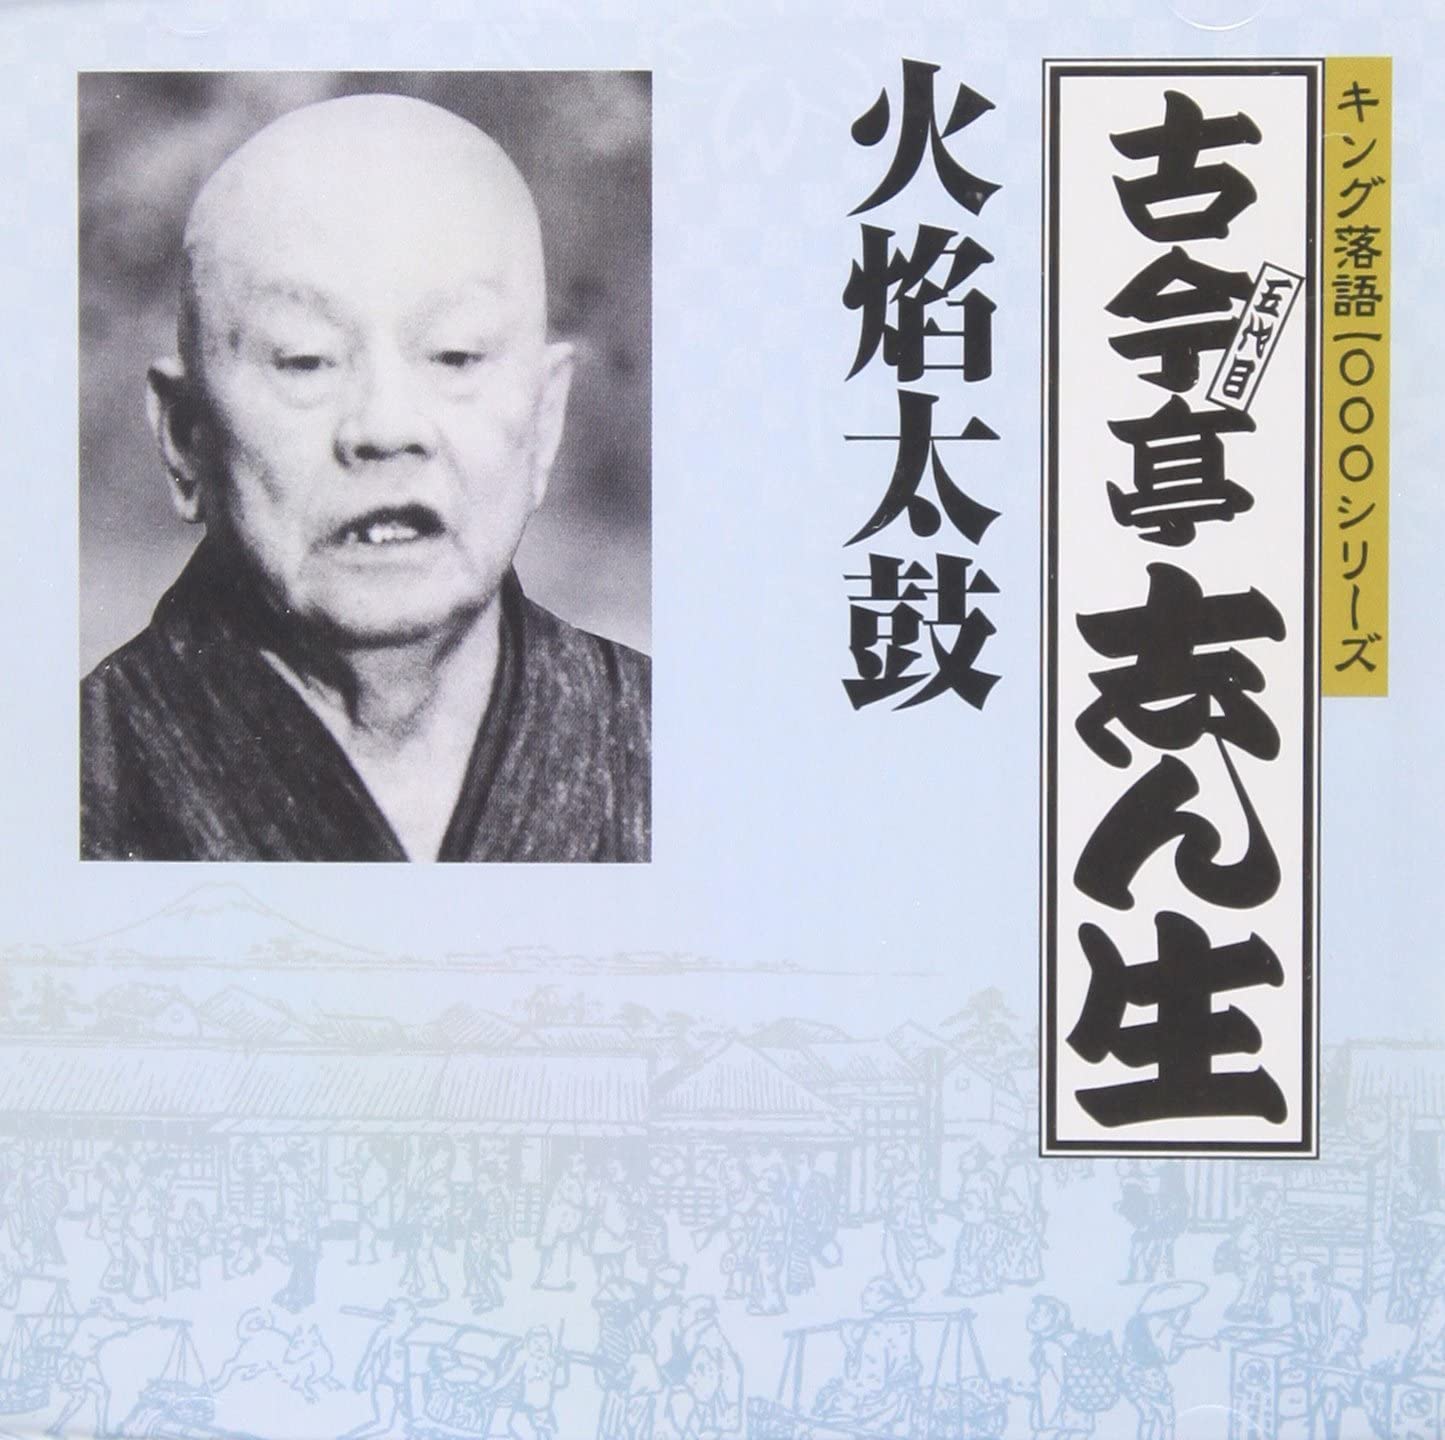 キング落語一〇〇〇シリーズ
五代目
古今亭志ん生
火焔太鼓